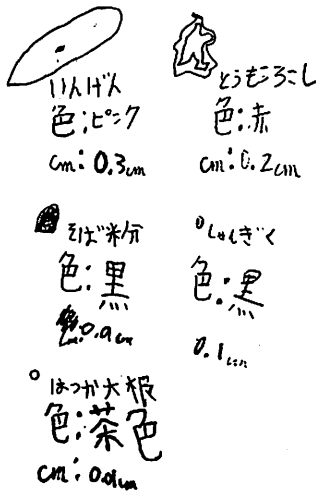 いんげん
色:ピンク
cm:0.3cm
とうもろこし
色:赤
cm:0.2cm
そば粉
色:黒
しゅんぎく
色:黒
0.1cm
はつか大根
色:茶色